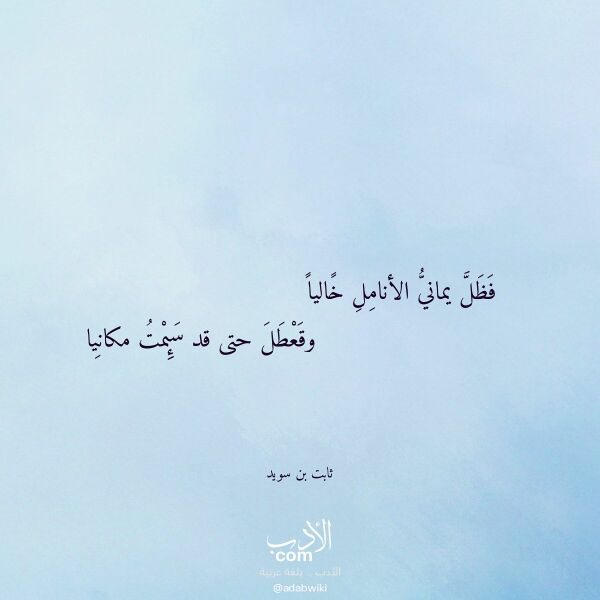 فَظَلَّ يمانيُّ الأنامِلِ خًالياً
وقَعْطَلَ حتى قد سَئِمْتُ مكانِيا
ثابت بن سويد
الأدب
.com
الأدب .. بلغة عربية
@adabwiki